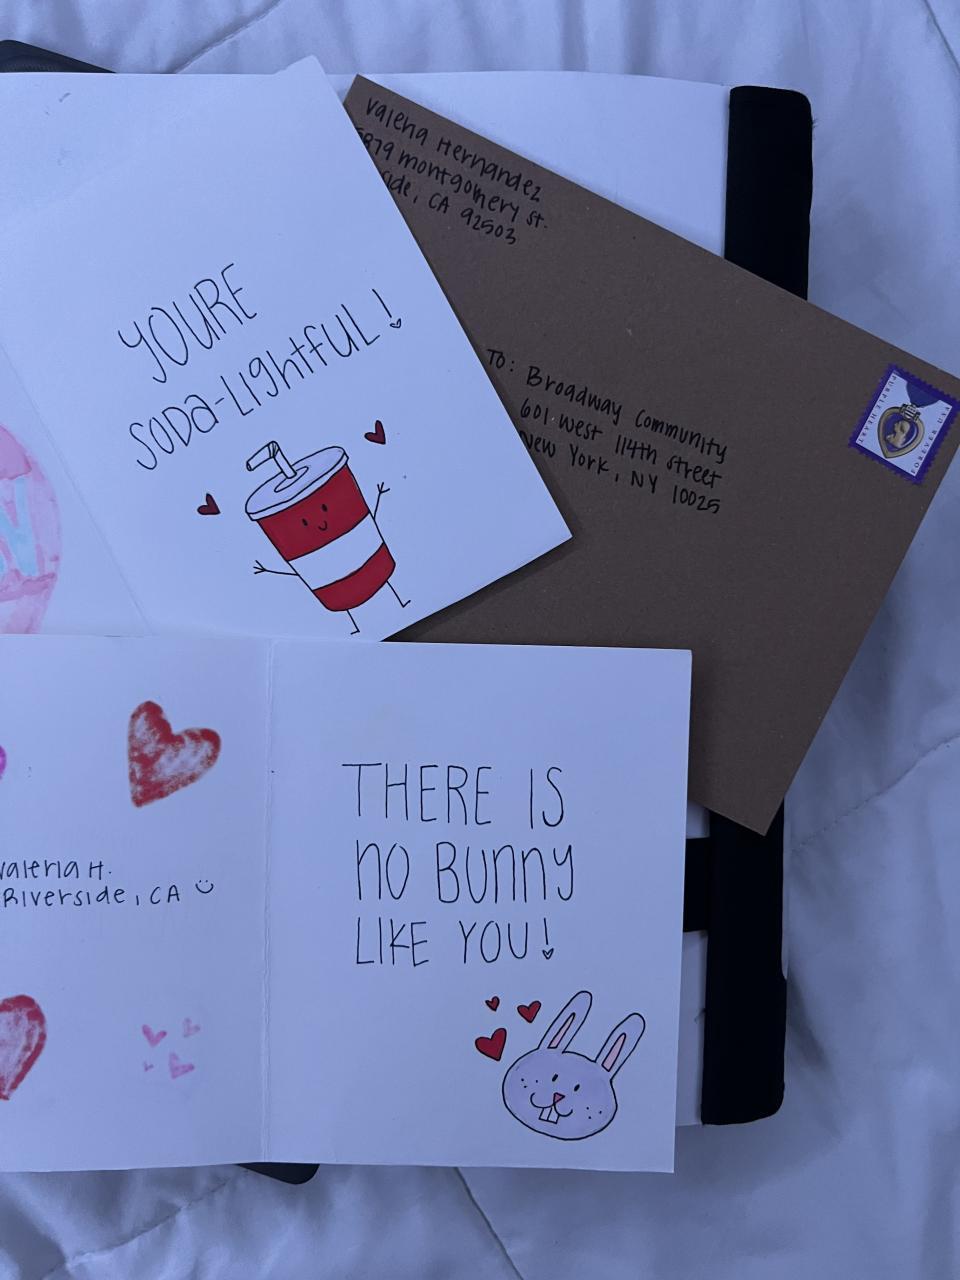 Valeria Hernandez
5879 montgomery st.
side, CA 92503
To: Broadway Community
601 West 114th street
New York, NY 10025
PURPLE HEART
FOREVER USA
YOURE
SODA-LIGHTFUL!
Valeria H.
Riverside, CA
THERE IS
NO BUNNY
LIKE YOU!